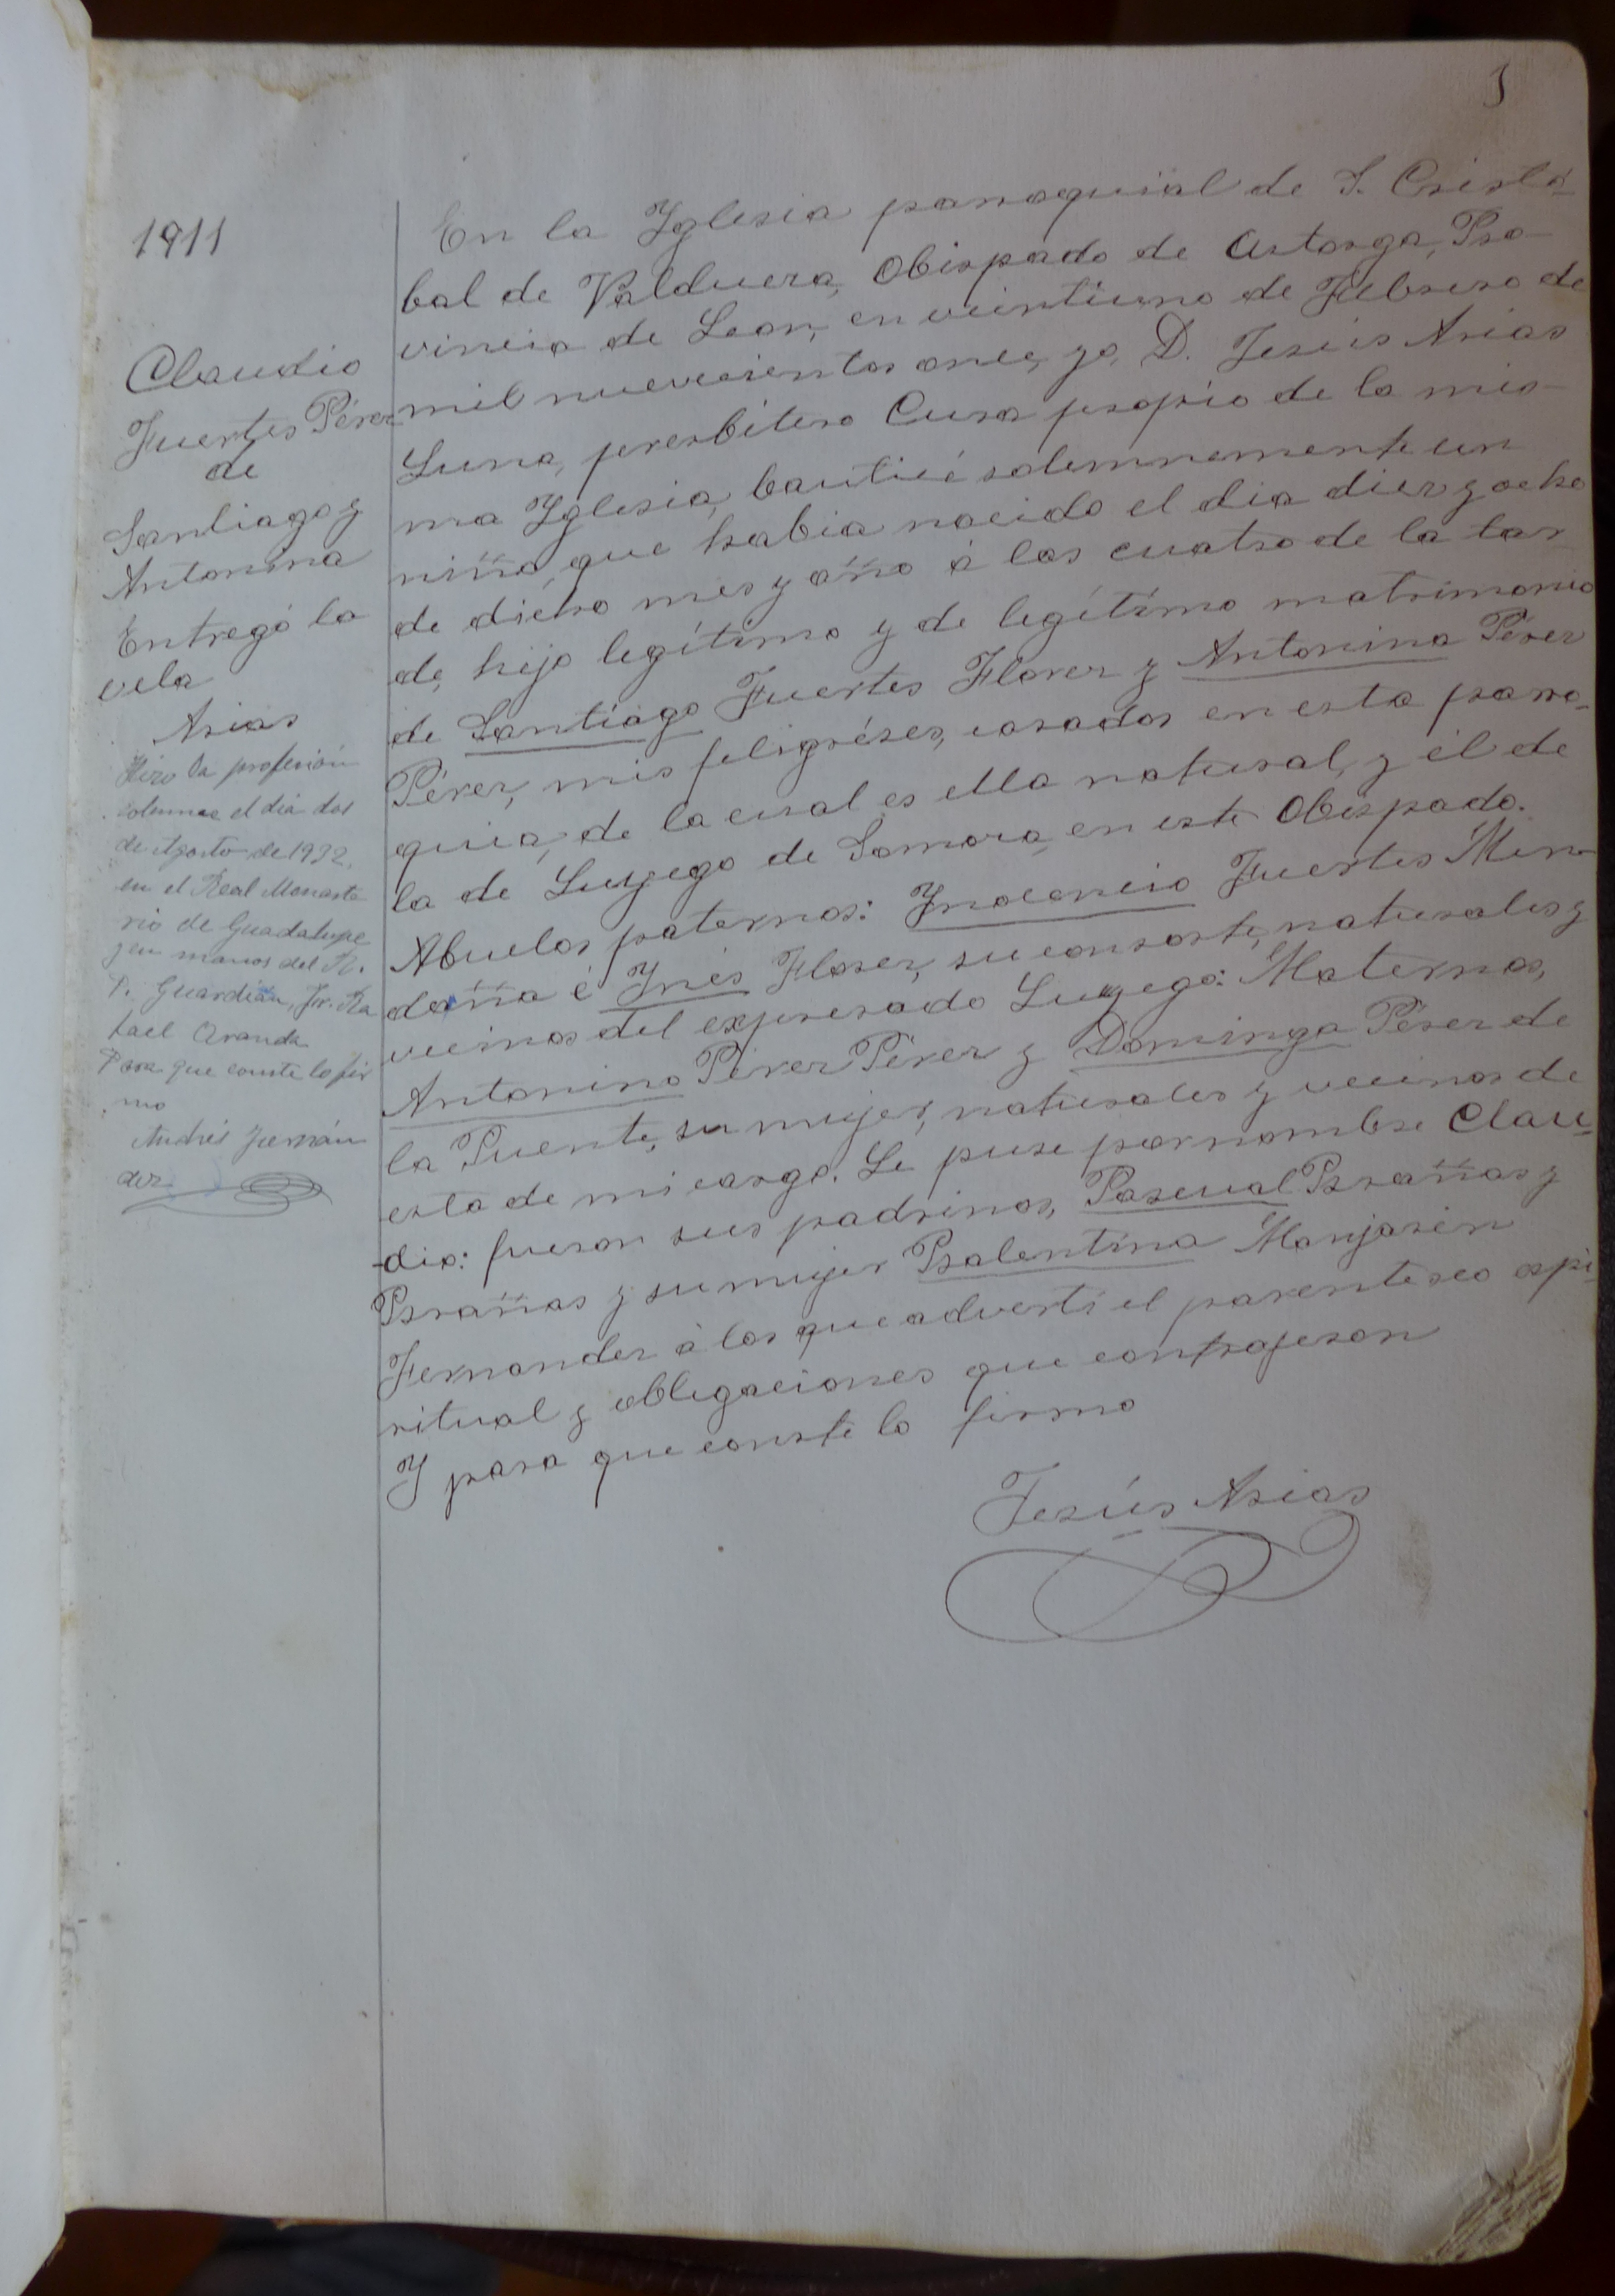 1
1911
Claudio
Fuertes Pérez
de
Santiago y
Antonina
Entregó la
vela
Arias
Hizo la profesión
solemne el día dos
de Agosto de 1932.
en el Real Monaste
rio de Guadalupe
y en manos del R.
P. Guardián, Fr. Ra
fael Aranda
Para que conste lo fir
mo
Andrés Fernán
dez
En la Yglesia parroquial de S. Cristó-
bal de Valduera, Obispado de Astorga, Pro-
vincia de Leon, en veintiuno de Febrero de
mil nuevecientos once, yo, D. Jesús Arias
Luna, presbítero Cura propio de la mis-
ma Yglesia, bauticé solemnemente un
niño, que habia nacido el dia diez y ocho
de dicho mes y año á las cuatro de la tar
de, hijo legítimo y de legítimo matrimonio
de Santiago Fuertes Florez y Antonina Pérez
Pérez, mis feligréses, casados en esta parro-
quia, de la cual es ella natural, y él de
la de Luyego de Somoza, en este Obispado.
Abuelos paternos: Ynocencio Fuertes Men-
daña é Ynés Florez, su consorte, naturales y
vecinos del expresado Luyego: Maternos,
Antonino Pérez Pérez y Dominga Pérez de
la Puente, su mujer, naturales y vecinos de
esta de mi cargo. Le puse por nombre Clau-
-dio: fueron sus padrinos, Pascual Brañas y
Brañas y su mujer Balentina Monjarín
Fernandez á los que advertí el parentesco espi-
ritual y obligaciones que contrajeron
Y para que conste lo firmo
Jesús Arias